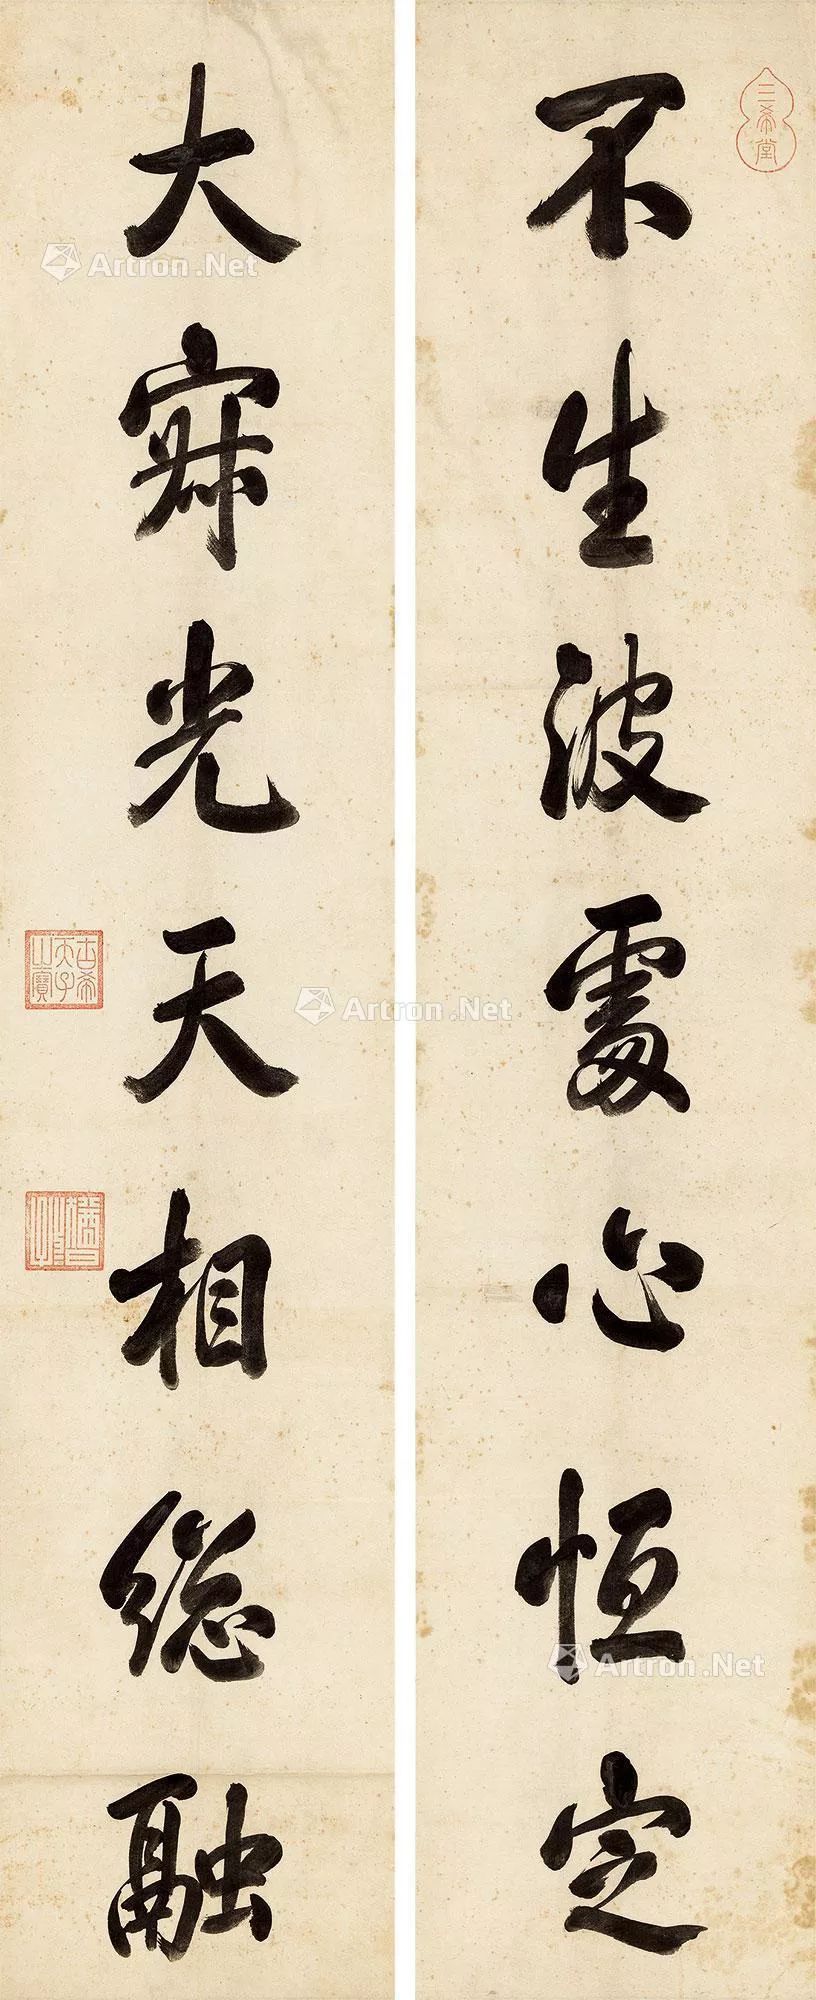 三希堂
不生波處心恒定
大寂光天相總融
古希天子之寶
Artron.Net
Artron.Net
Artron.Net